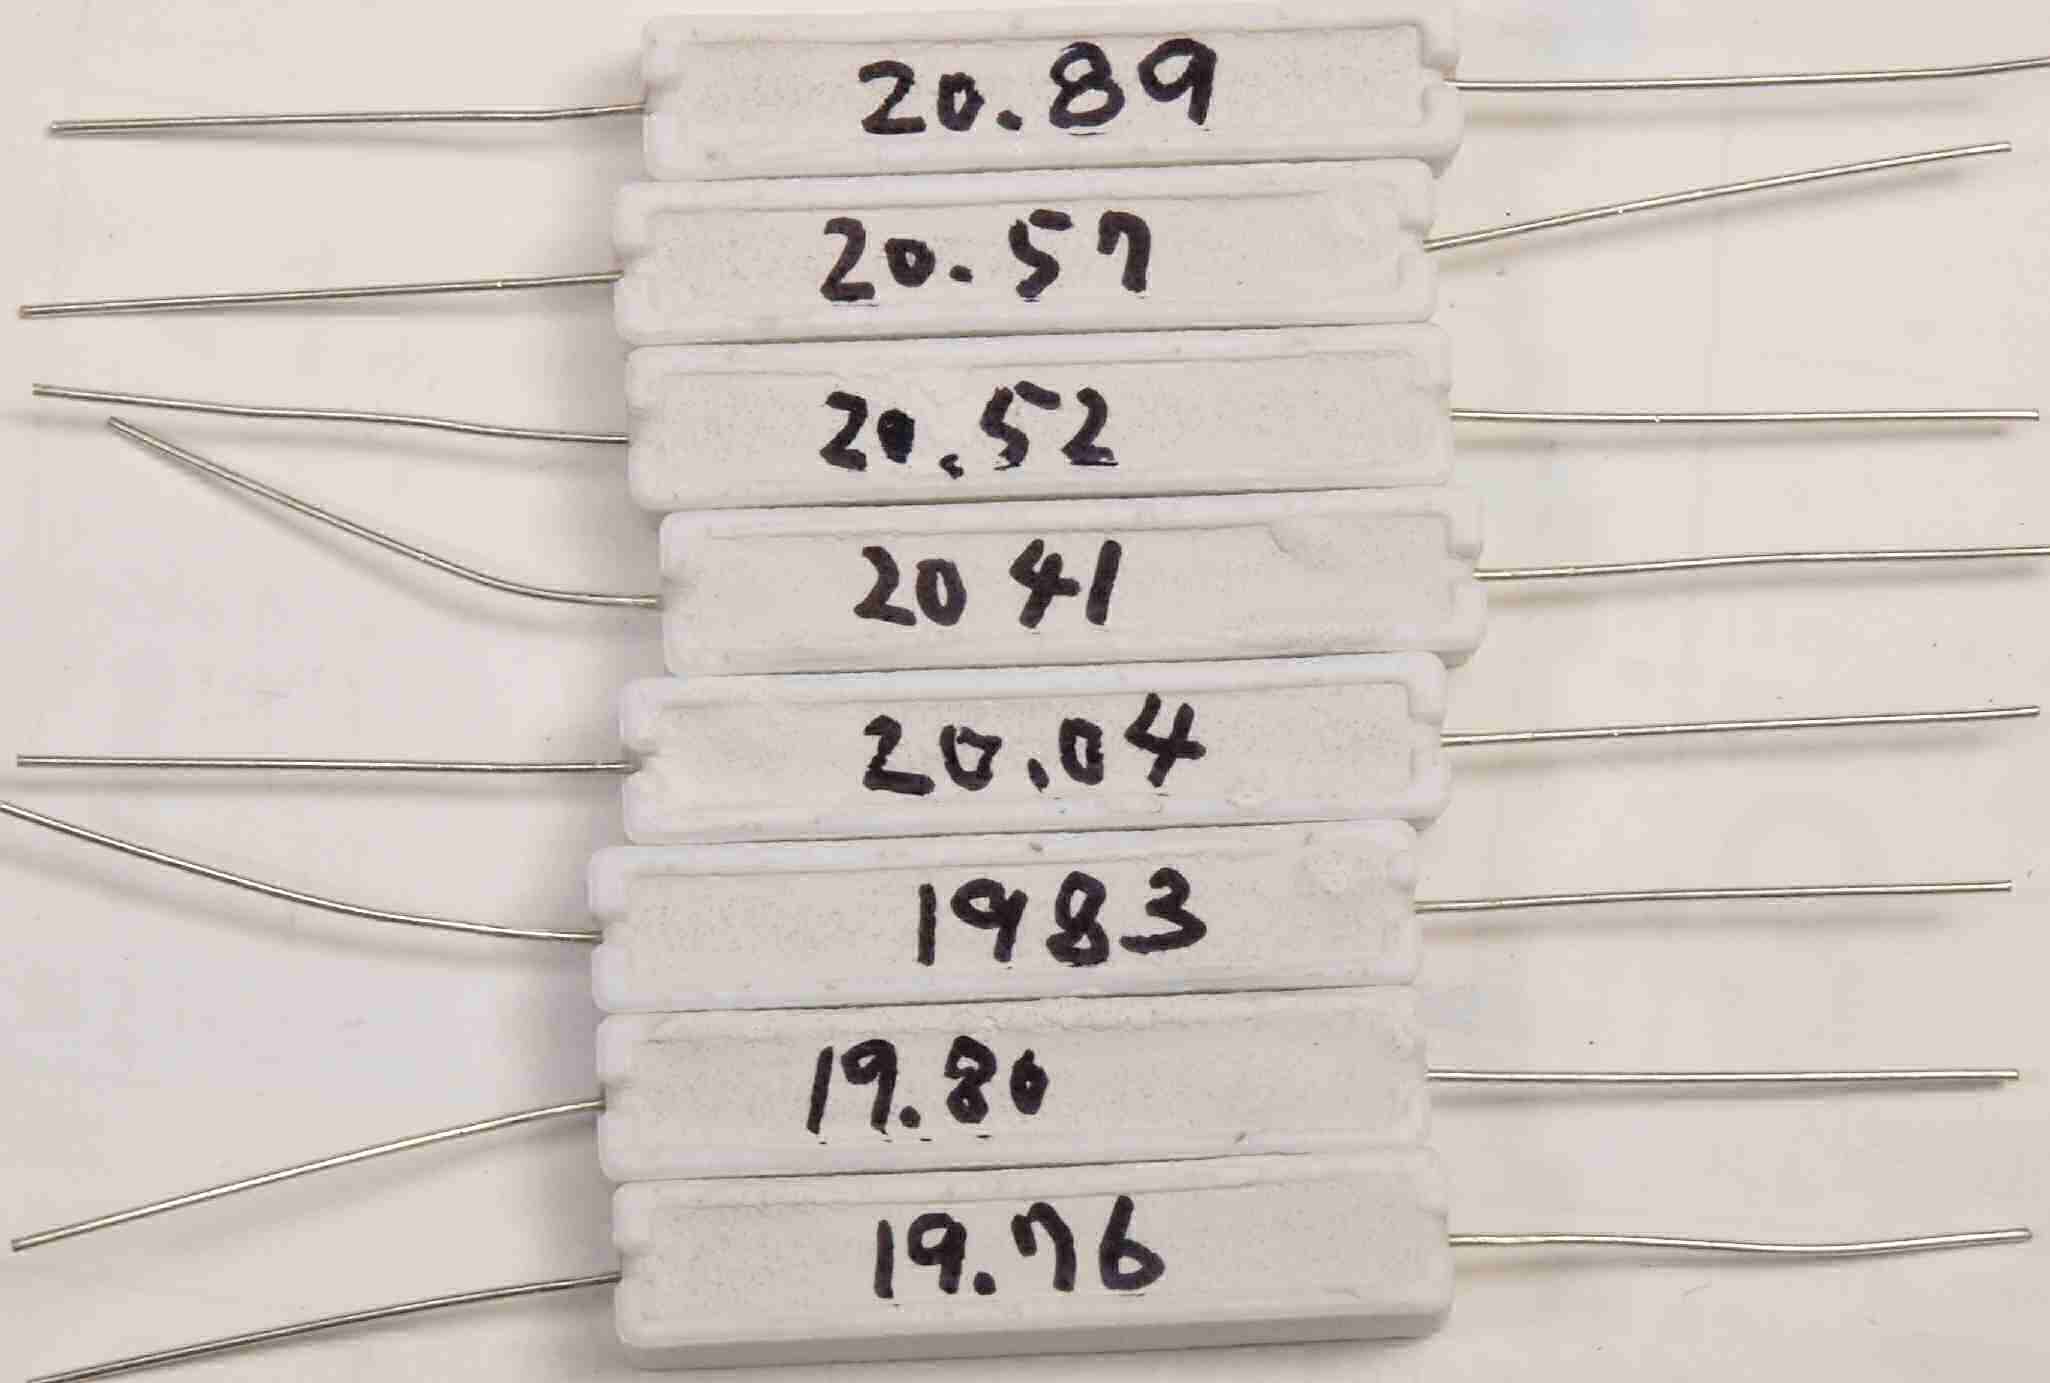 20.89
20.57
20.52
20 41
20.04
1983
19.80
19.76